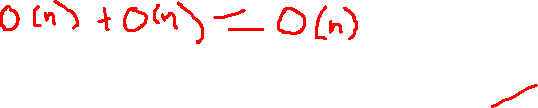 O(n) + O(n) = O(n)